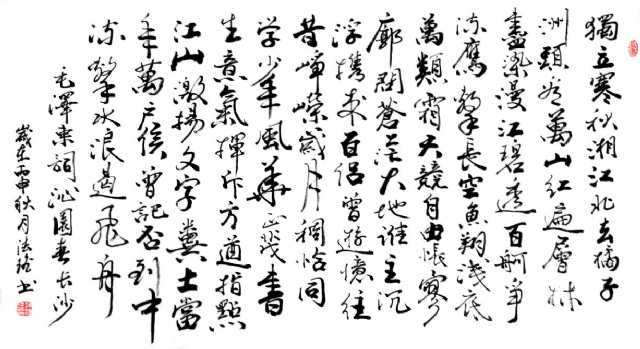 獨立寒秋湘江北去橘子
洲頭看萬山紅遍層林
盡染漫江碧透百舸爭
流鷹擊長空魚翔淺底
萬類霜天競自由悵寥
廓問蒼茫大地誰主沉
浮攜來百侶曾遊憶往
昔崢嶸歲月稠恰同
学少年風華正茂書
生意氣揮斥方遒指點
江山激揚文字糞土當
年萬户侯曾記否到中
流擊水浪遏飛舟
毛澤東詞沁園春長沙
歲在丙申秋月法書